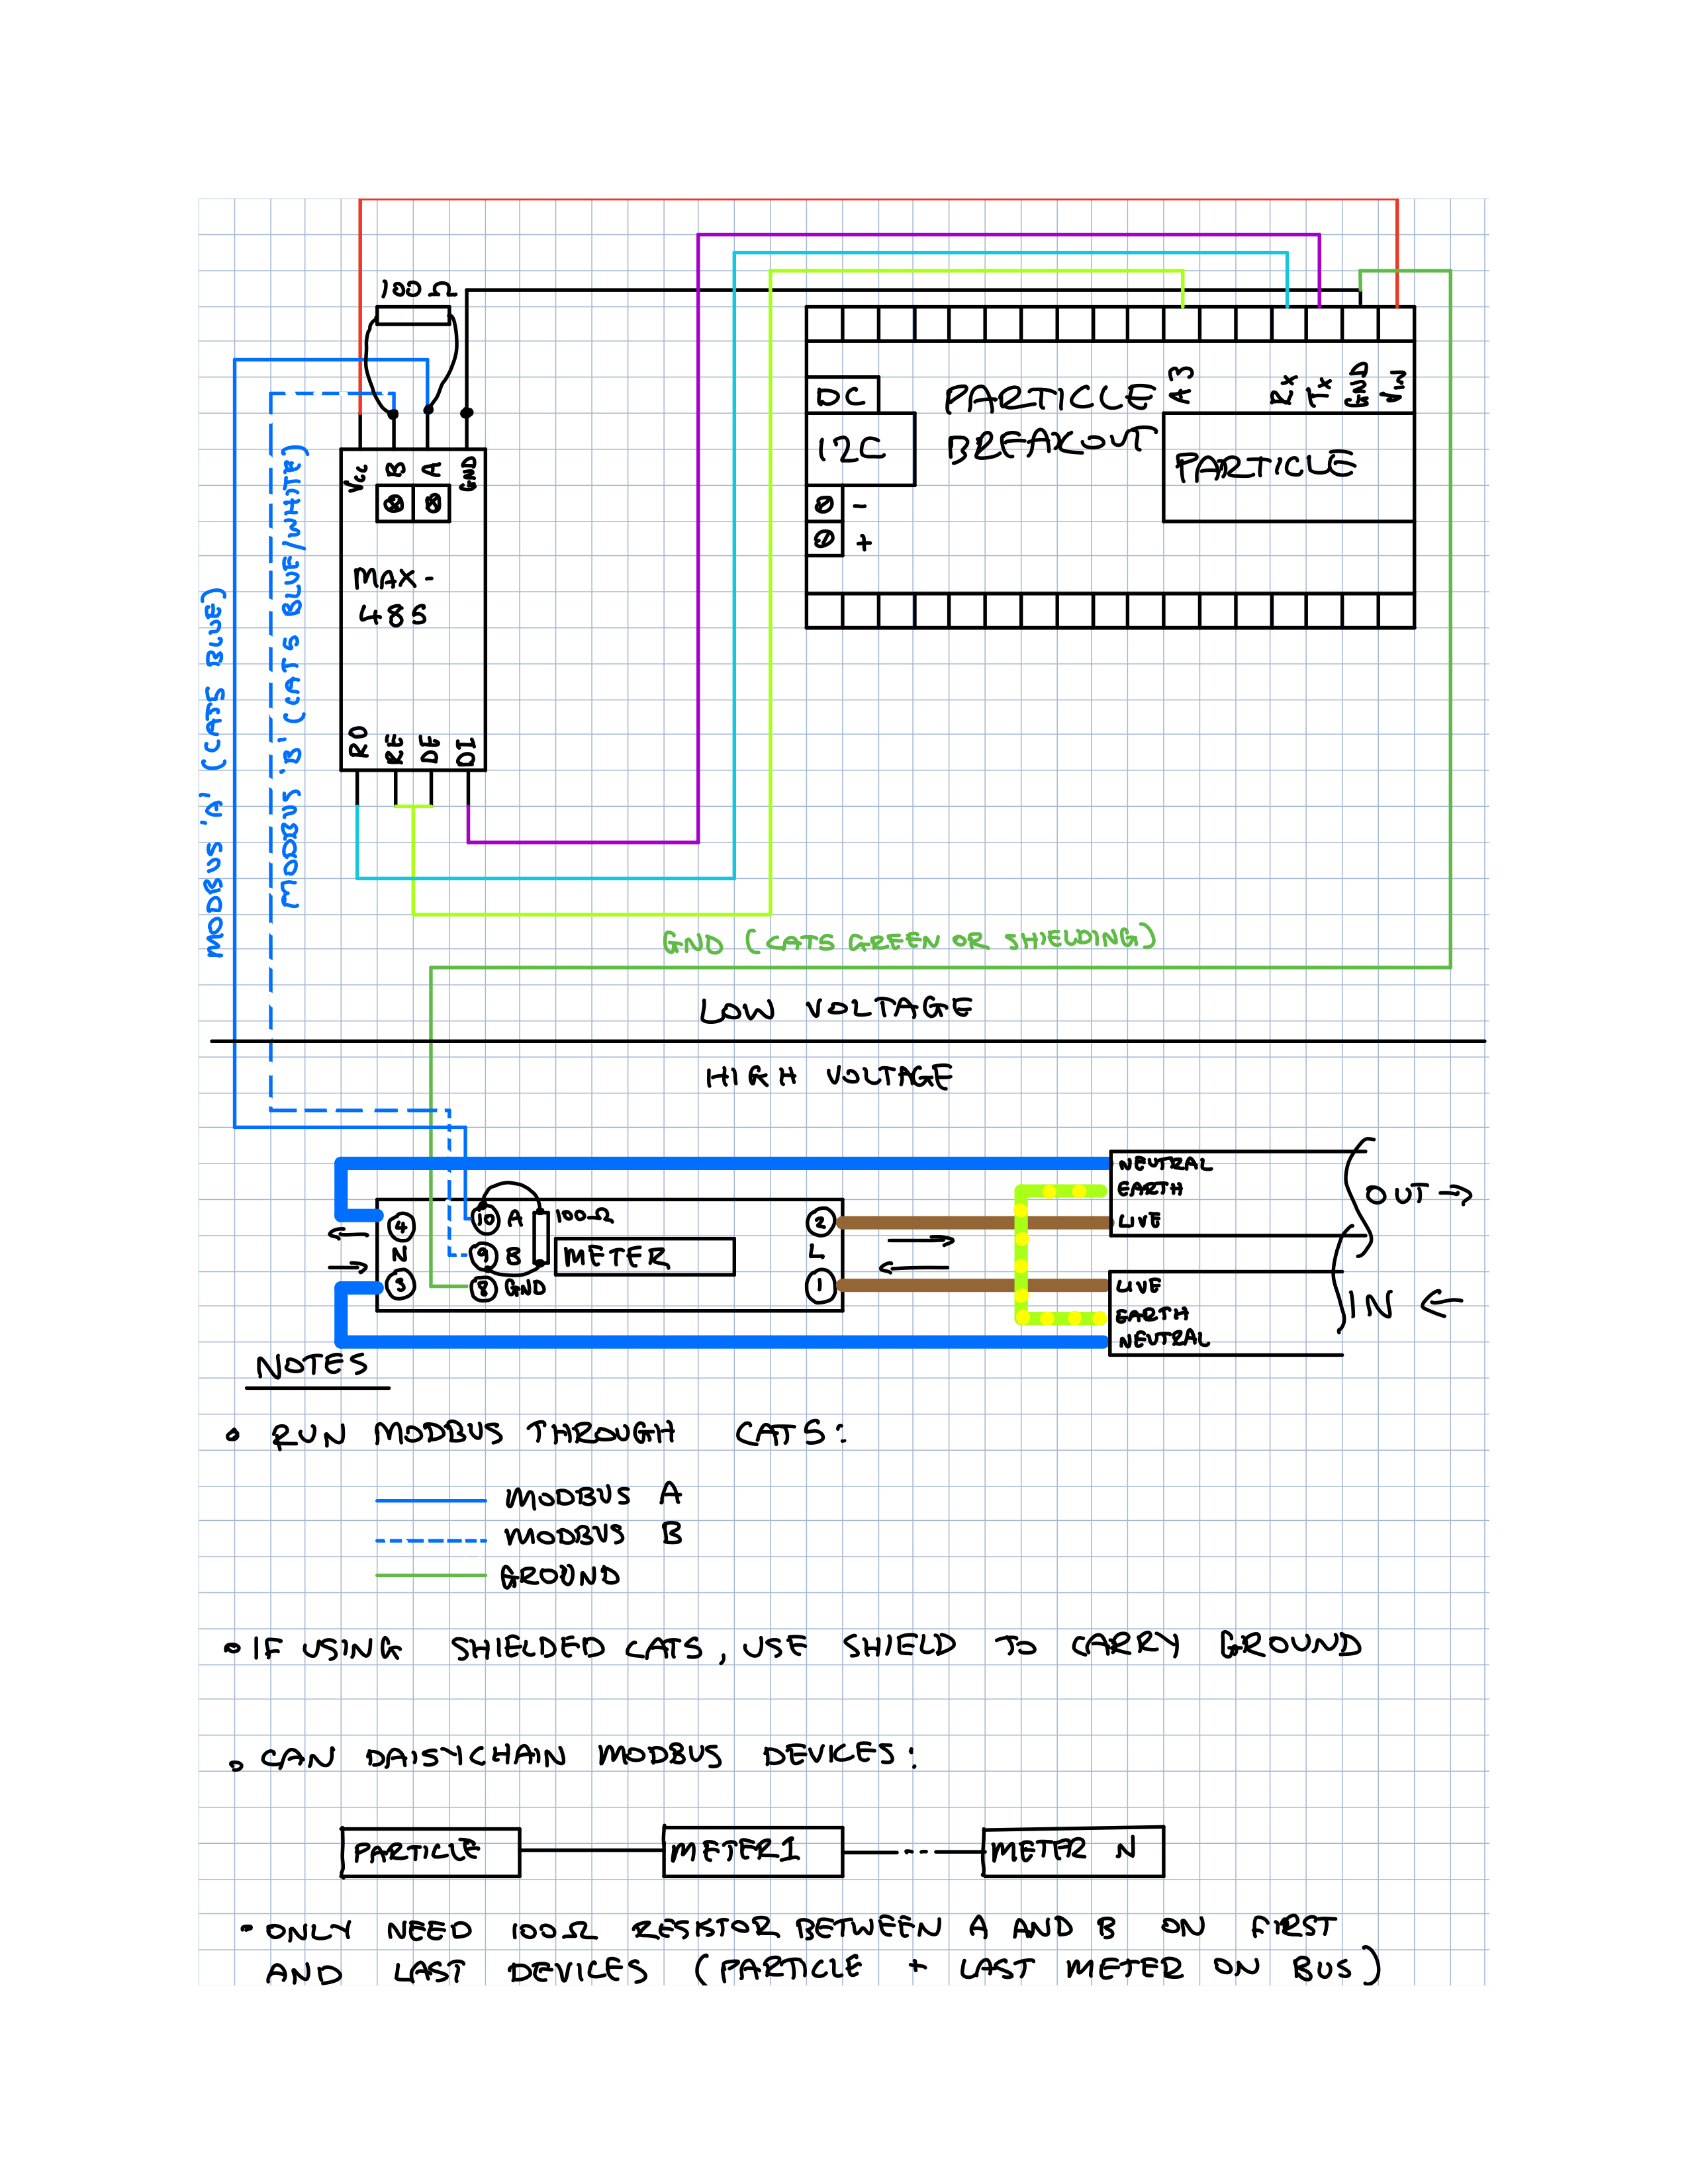 100Ω
VCC
B
A
GND
MAX-
485
RO
RE
DE
DI
MODBUS 'A' (CAT5 BLUE)
MODBUS 'B' (CAT5 BLUE/WHITE)
DC
I2C
-
+
PARTICLE
BREAKOUT
A3
RX
TX
GND
VIN
PARTICLE
GND (CAT5 GREEN OR SHIELDING)
LOW VOLTAGE
HIGH VOLTAGE
4
N
3
10 A
9 B
8 GND
100Ω
METER
2
L
1
NEUTRAL
EARTH
LIVE
OUT →
LIVE
EARTH
NEUTRAL
IN ←
NOTES
• RUN MODBUS THROUGH CAT5:
MODBUS A
MODBUS B
GROUND
• IF USING SHIELDED CAT5, USE SHIELD TO CARRY GROUND
• CAN DAISYCHAIN MODBUS DEVICES:
PARTICLE
METER 1
METER N
• ONLY NEED 100Ω RESISTOR BETWEEN A AND B ON FIRST
AND LAST DEVICES (PARTICLE + LAST METER ON BUS)